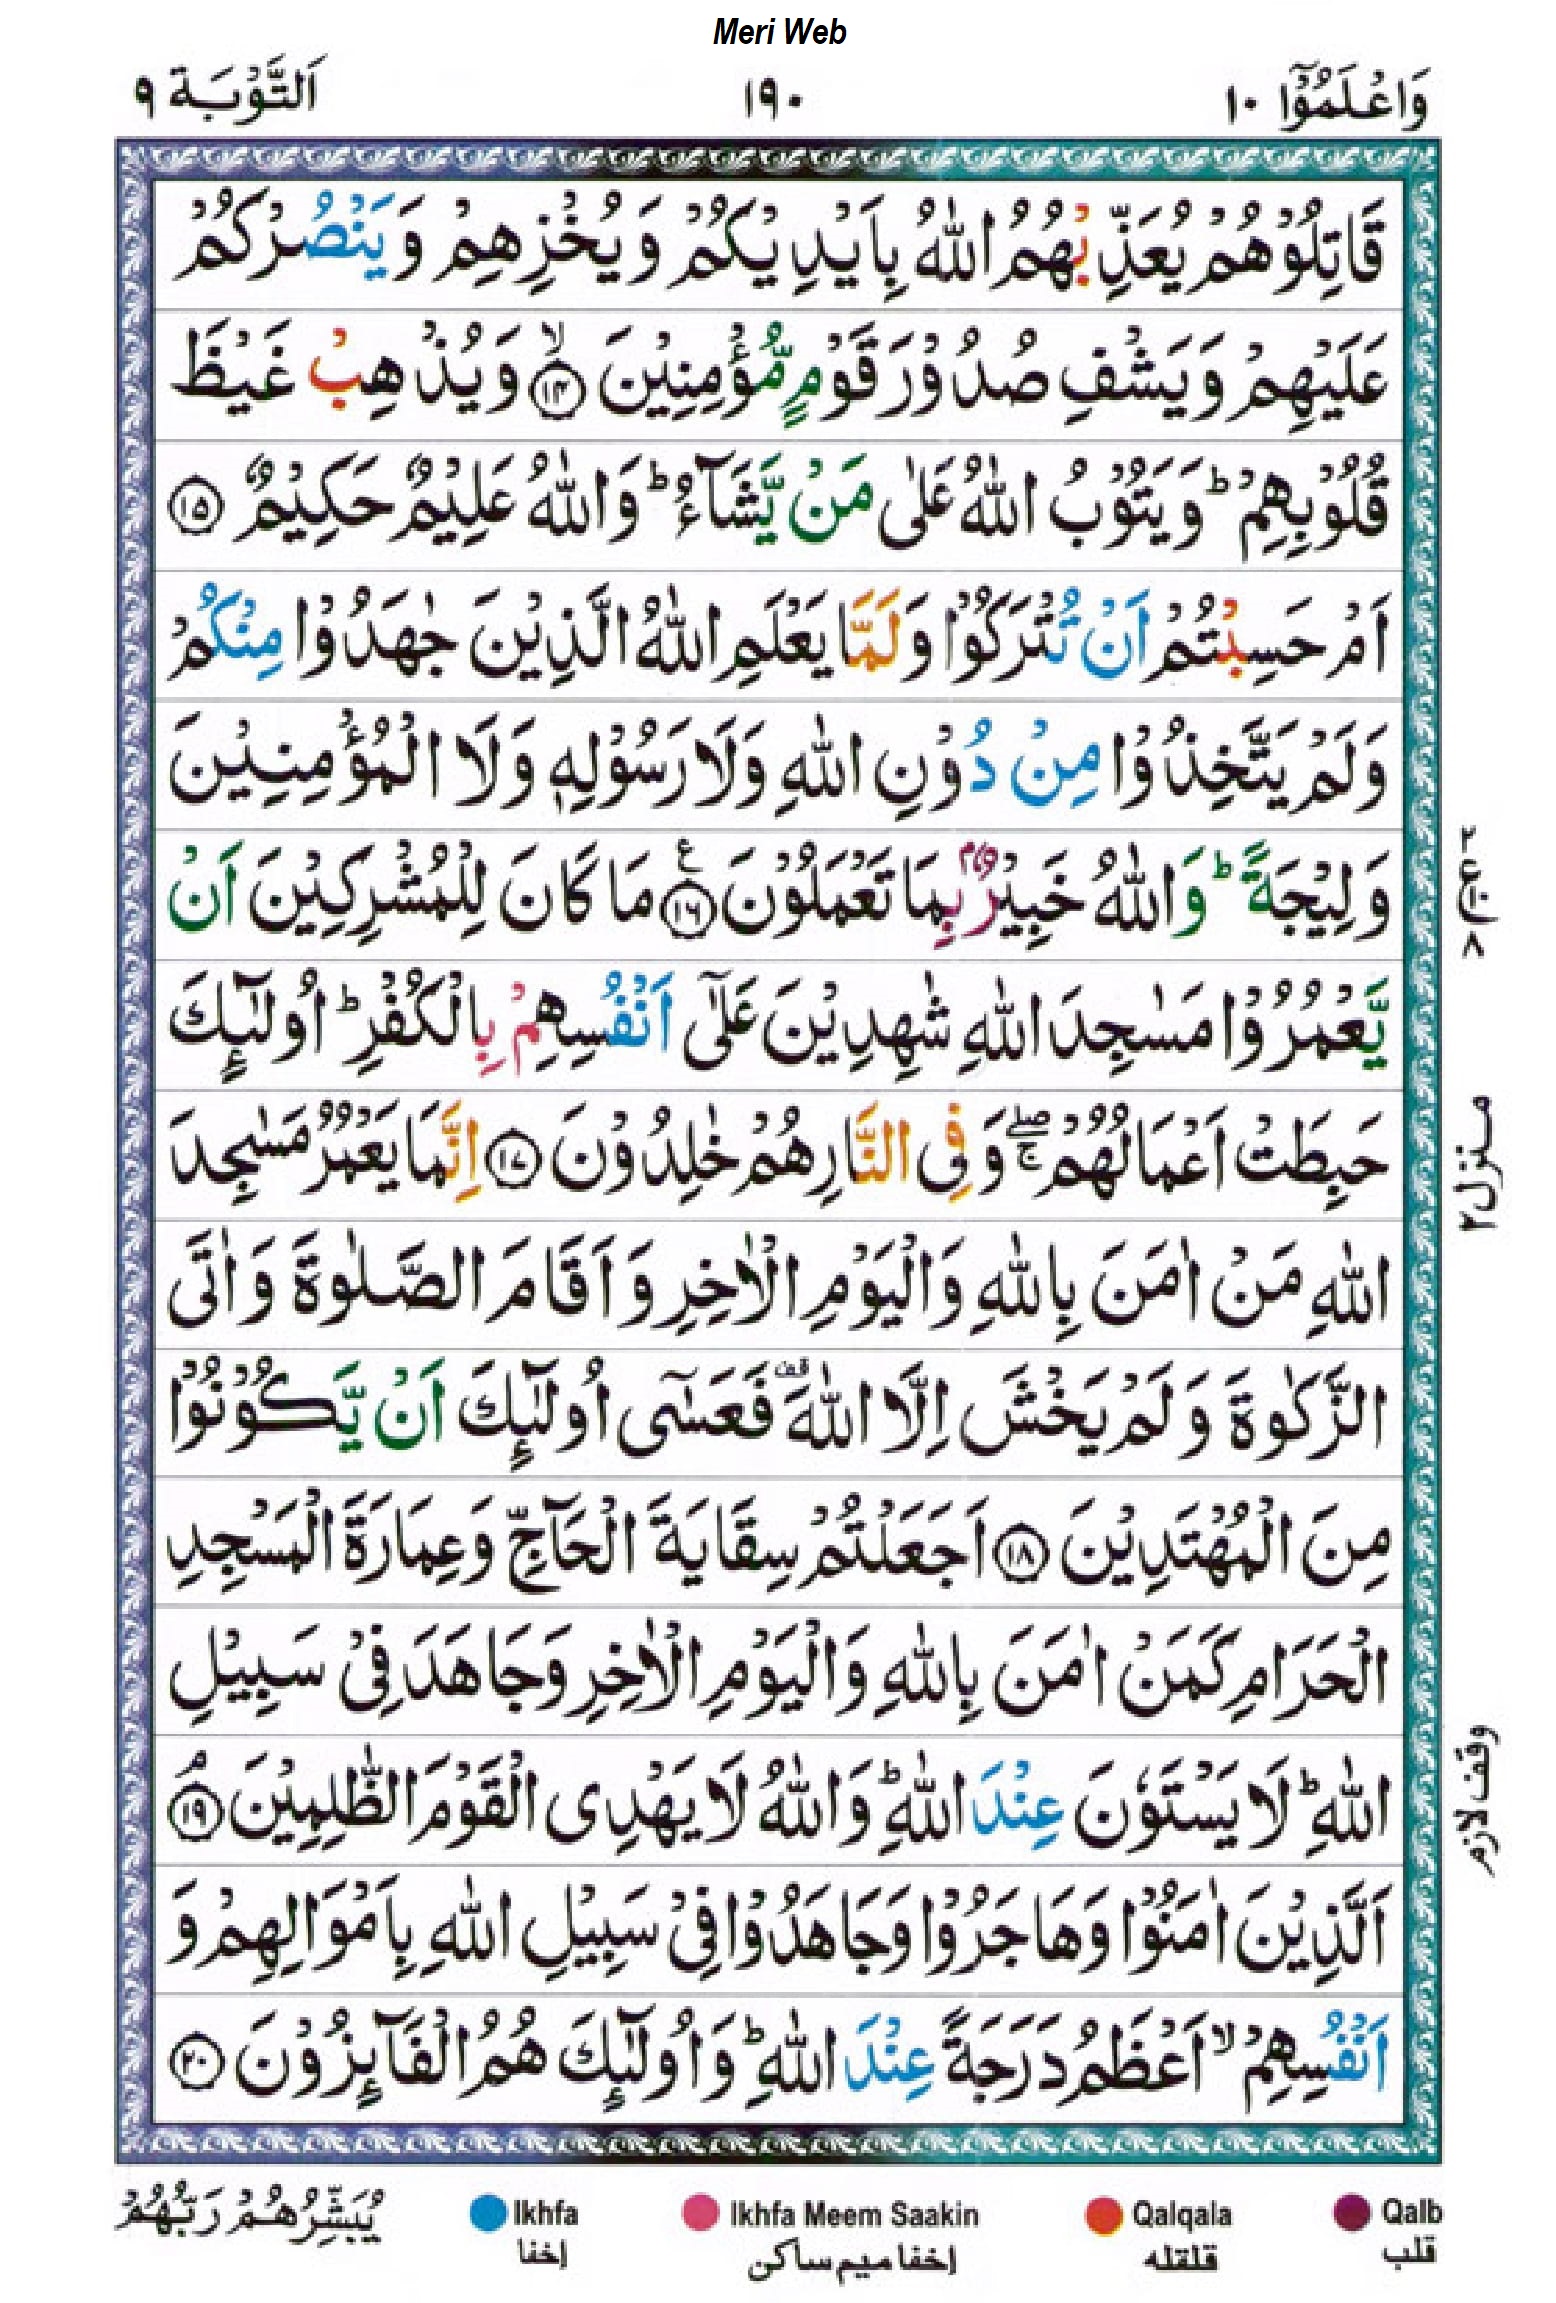 Meri Web
وَاعْلَمُوْٓا ١٠
١٩٠
اَلتَّوْبَة ٩
قَاتِلُوْهُمْ يُعَذِّبْهُمُ اللّٰهُ بِاَيْدِيْكُمْ وَيُخْزِهِمْ وَيَنْصُرْكُمْ
عَلَيْهِمْ وَيَشْفِ صُدُوْرَ قَوْمٍ مُّؤْمِنِيْنَ ۙ‏﴿١٤﴾ وَيُذْهِبْ غَيْظَ
قُلُوْبِهِمْ ؕ وَيَتُوْبُ اللّٰهُ عَلٰى مَنْ يَّشَآءُ ؕ وَاللّٰهُ عَلِيْمٌ حَكِيْمٌ ﴿١٥﴾
اَمْ حَسِبْتُمْ اَنْ تُتْرَكُوْا وَلَمَّا يَعْلَمِ اللّٰهُ الَّذِيْنَ جٰهَدُوْا مِنْكُمْ
وَلَمْ يَتَّخِذُوْا مِنْ دُوْنِ اللّٰهِ وَلَا رَسُوْلِهٖ وَلَا الْمُؤْمِنِيْنَ
وَلِيْجَةً ؕ وَاللّٰهُ خَبِيْرٌۢ بِمَا تَعْمَلُوْنَ ﴿١٦﴾ ع مَا كَانَ لِلْمُشْرِكِيْنَ اَنْ
يَّعْمُرُوْا مَسٰجِدَ اللّٰهِ شٰهِدِيْنَ عَلٰٓى اَنْفُسِهِمْ بِالْكُفْرِ ؕ اُولٰٓئِكَ
حَبِطَتْ اَعْمَالُهُمْ ۖۚ وَفِى النَّارِ هُمْ خٰلِدُوْنَ ﴿١٧﴾ اِنَّمَا يَعْمُرُ مَسٰجِدَ
اللّٰهِ مَنْ اٰمَنَ بِاللّٰهِ وَالْيَوْمِ الْاٰخِرِ وَاَقَامَ الصَّلٰوةَ وَاٰتَى
الزَّكٰوةَ وَلَمْ يَخْشَ اِلَّا اللّٰهَ قف فَعَسٰٓى اُولٰٓئِكَ اَنْ يَّكُوْنُوْا
مِنَ الْمُهْتَدِيْنَ ﴿١٨﴾ اَجَعَلْتُمْ سِقَايَةَ الْحَآجِّ وَعِمَارَةَ الْمَسْجِدِ
الْحَرَامِ كَمَنْ اٰمَنَ بِاللّٰهِ وَالْيَوْمِ الْاٰخِرِ وَجَاهَدَ فِىْ سَبِيْلِ
اللّٰهِ ؕ لَا يَسْتَوٗنَ عِنْدَ اللّٰهِ ؕ وَاللّٰهُ لَا يَهْدِى الْقَوْمَ الظّٰلِمِيْنَ ۘ‏﴿١٩﴾
اَلَّذِيْنَ اٰمَنُوْا وَهَاجَرُوْا وَجَاهَدُوْا فِىْ سَبِيْلِ اللّٰهِ بِاَمْوَالِهِمْ وَ
اَنْفُسِهِمْ ۙ اَعْظَمُ دَرَجَةً عِنْدَ اللّٰهِ ؕ وَاُولٰٓئِكَ هُمُ الْفَآئِزُوْنَ ﴿٢٠﴾
٢
ع
٨
منزل ٢
وقف لازم
يُبَشِّرُهُمْ رَبُّهُمْ
Ikhfa
إخفا
Ikhfa Meem Saakin
إخفا ميم ساكن
Qalqala
قلقله
Qalb
قلب